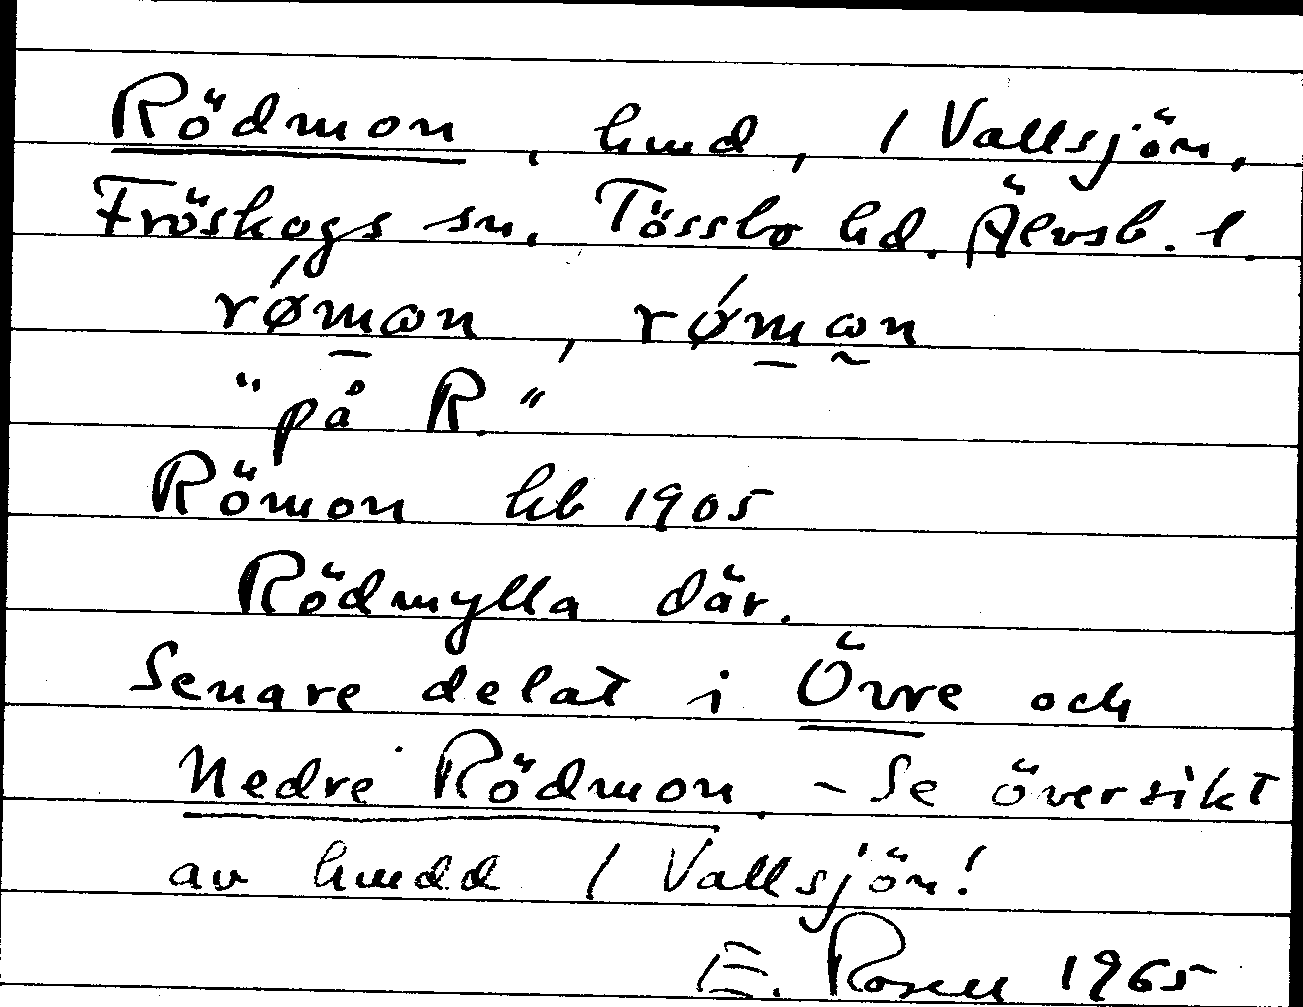 Rödmon, hmd, 1 Vallsjön,
Fröskogs sn. Tössbo hd. Älvsb. l.
rǿmωn, rǿmω̰n
"på R."
Römon hb 1905
Rödmylla där.
Senare delat i Övre och
Nedre Rödmon. - Se översikt
av hmdd 1 Vallsjön!
E. Rosell 1965